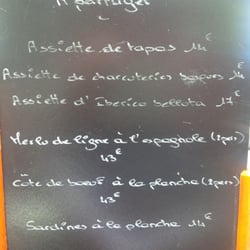 A partager
Assiette de tapas 14€
Assiette de charcuteries basques 14€
Assiette d'Iberico bellota 17€
Merlu de ligne à l'espagnole (2pers)
43€
Côte de boeuf à la plancha (2pers)
43€
Sardines à la plancha 14€